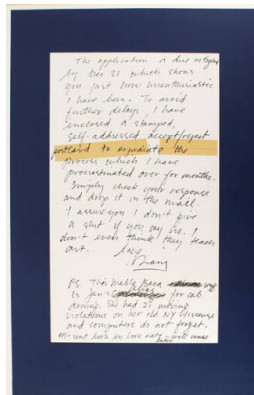 The application is due
by Dec 31 which shows
you just how unenthusiastic
I have been. To avoid
further delays, I have
enclosed a stamped,
self-addressed accept/reject
postcard to expedite the
process which I have
procrastinated over for months.
Simply check your response
and drop it in the mail.
I assure you I don't give
a shit if you say no. I
don't even think they teach
art.
Love
PS. Baca
is for cab
driving. She had 21 moving
violations on her old NY license
and computers do not forget.